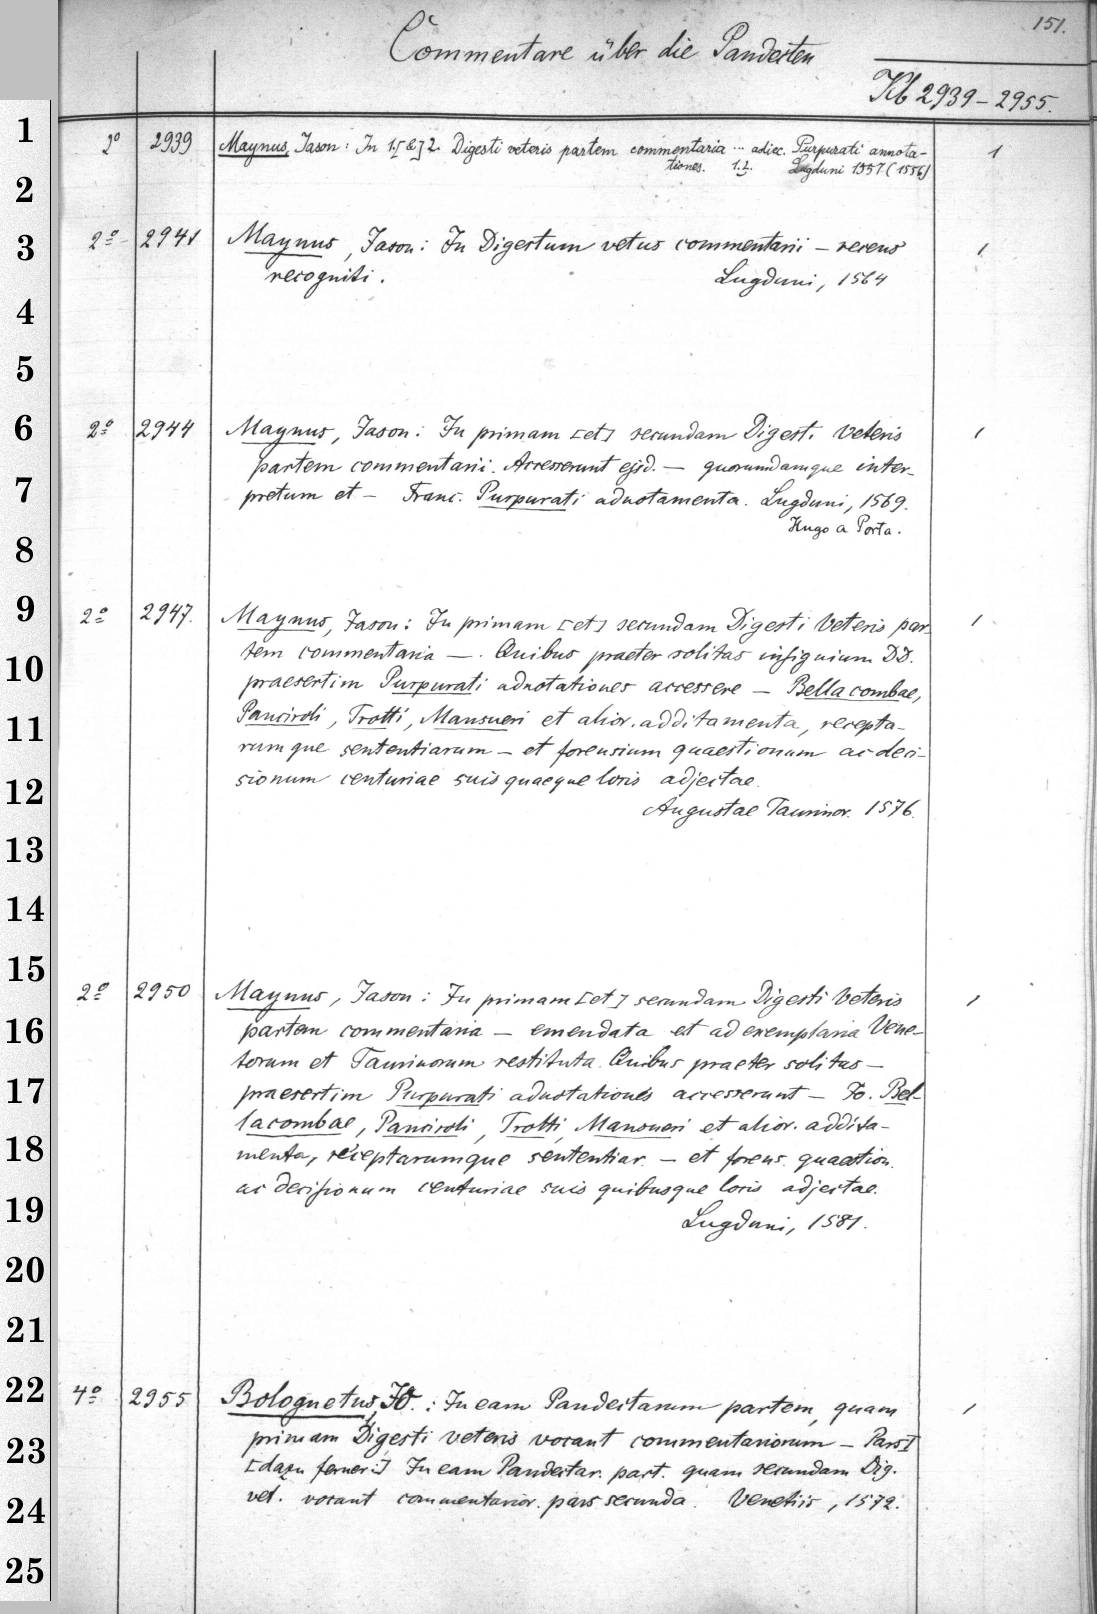 151.
Commentare über die Pandecten
Kb 2939 - 2955.
1
2
3
4
5
6
7
8
9
10
11
12
13
14
15
16
17
18
19
20
21
22
23
24
25
2° 2939 Maynus, Jason: In 1.[&] 2. Digesti veteris partem commentaria ... adiec. Purpurati annota- 1
tiones. 1.2. Lugduni 1557 (1556)
2° 2941 Maynus, Jason: In Digestum vetus commentarii — recens 1
recogniti. Lugduni, 1564
2° 2944 Maynus, Jason: In primam [et] secundam Digesti Veteris 1
partem commentarii. Accesserunt ejsd. — quorumdamque inter-
pretum et — Franc. Purpurati adnotamenta. Lugduni, 1569.
Hugo a Porta.
2° 2947. Maynus, Jason: In primam [et] secundam Digesti Veteris par- 1
tem commentaria —. Quibus praeter solitas insignium DD.
praesertim Purpurati adnotationes accessere — Bellacombae,
Panciroli, Trotti, Mansueri et alior. additamenta, recepta-
rumque sententiarum — et forensium quaestionum ac deci-
sionum centuriae suis quaeque locis adjectae.
Augustae Taurinor. 1576.
2° 2950 Maynus, Jason: In primam [et] secundam Digesti Veteris 1
partem commentaria — emendata et ad exemplaria Vene-
torum et Taurinorum restituta. Quibus praeter solitas —
praesertim Purpurati adnotationes accesserunt — Jo. Bel-
lacombae, Panciroli, Trotti, Mansueri et alior. addita-
menta, receptarumque sententiar. — et forens. quaestion.
ac decisionum centuriae suis quibusque locis adjectae.
Lugduni, 1581.
4° 2955 Bolognetus, Jo.: In eam Pandectarum partem, quam 1
primam Digesti veteris vocant commentariorum — Pars I
[dazu ferner:] In eam Pandectar. part. quam secundam Dig.
vet. vocant commentarior. pars secunda. Venetiis, 1572.